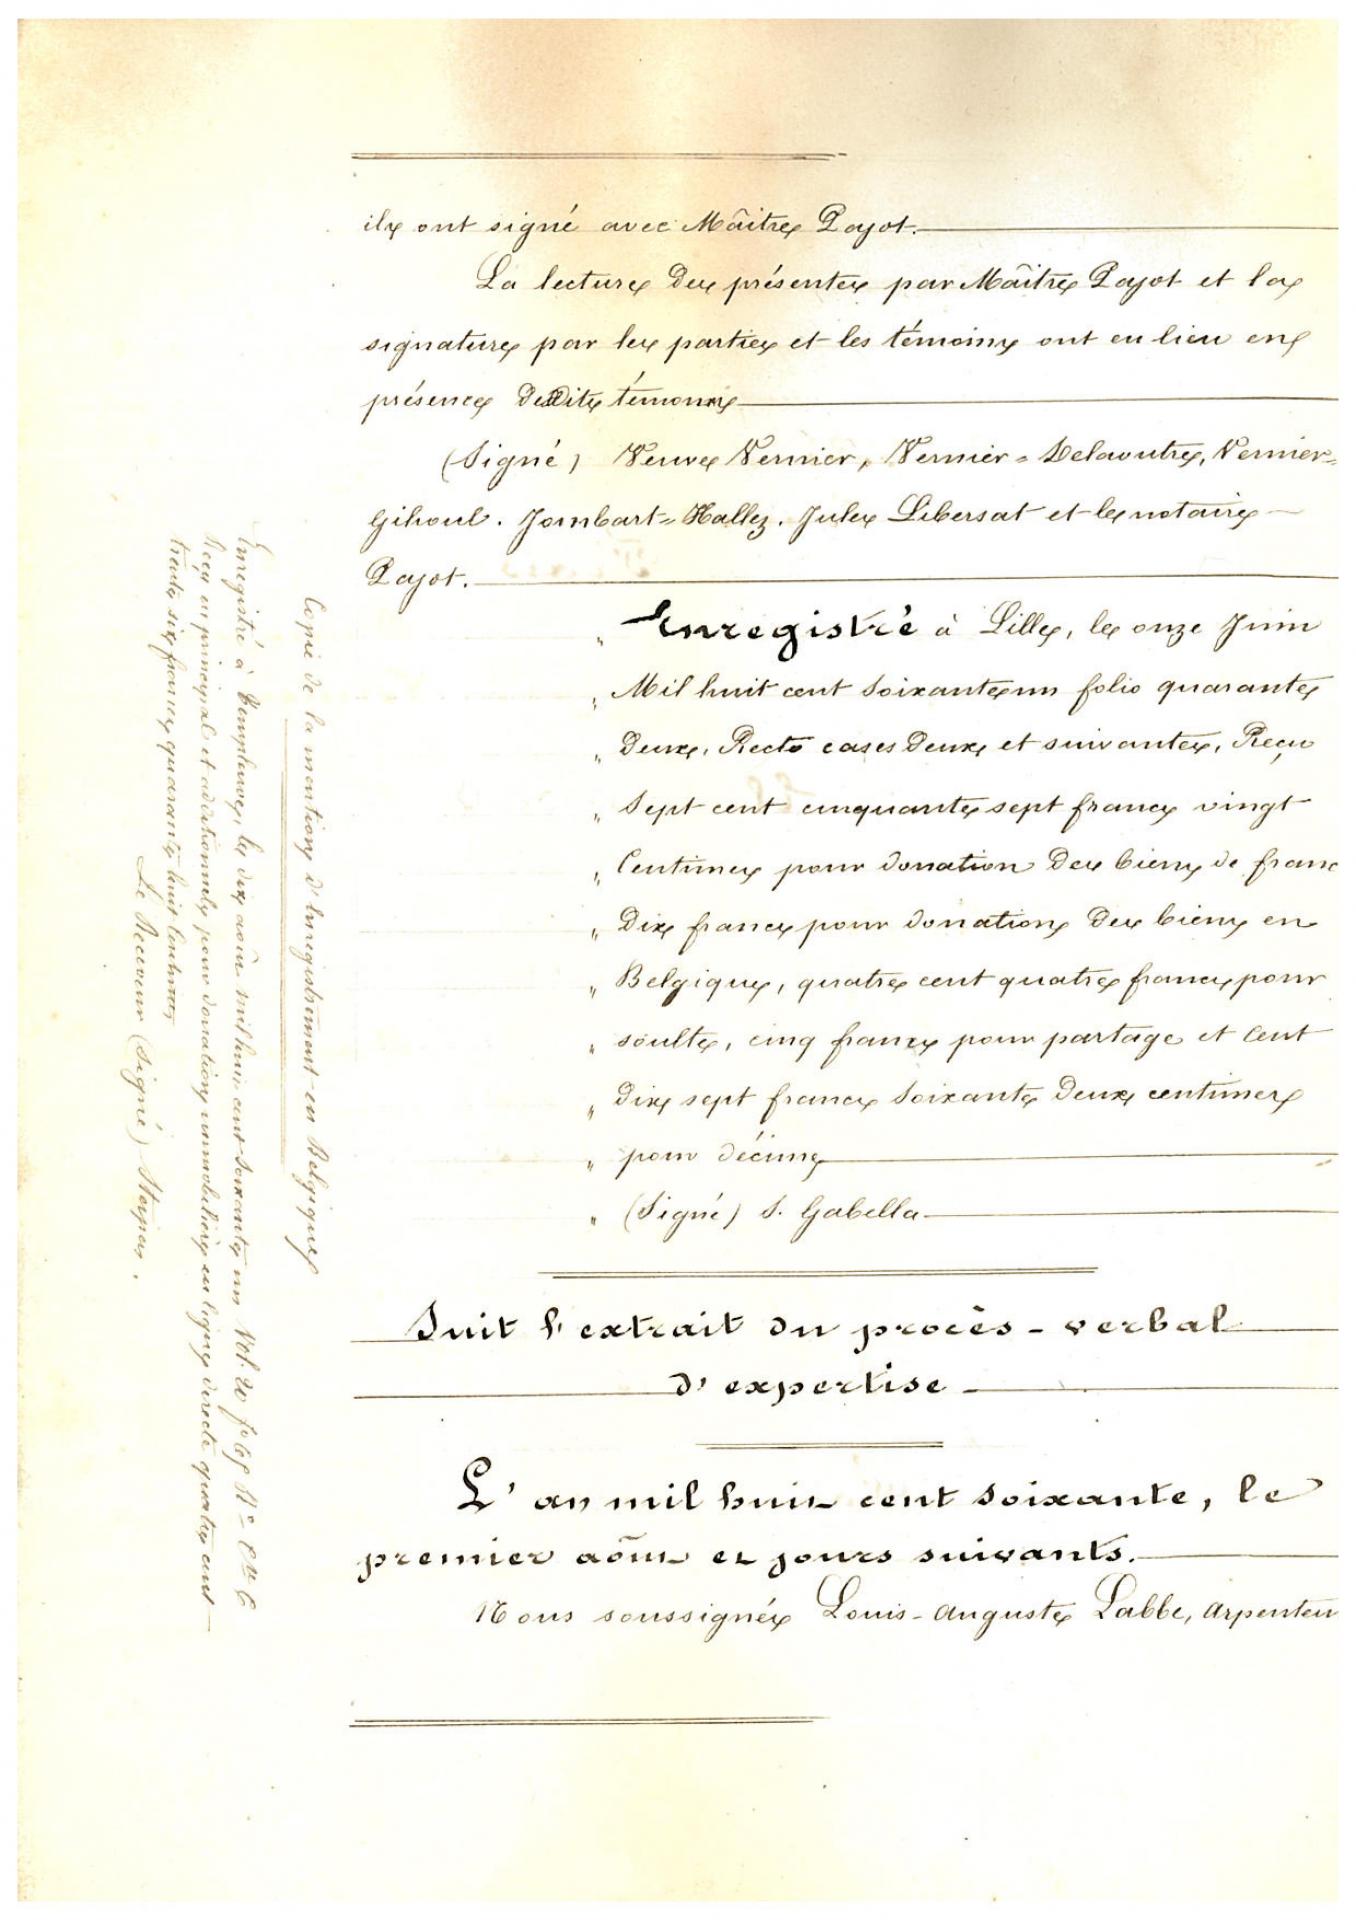 ils ont signé avec Maître Pajot.
La lecture des présentes par Maître Pajot et la
signature par les parties et les témoins ont eu lieu en
présence desdits témoins
(Signé) Veuve Vernier, Vernier-Delaoutre, Vernier-
Gihoul. Jombart-Hallez. Jules Libersat et le notaire
Pajot.
" Enregistré à Lille, le onze Juin
" Mil huit cent soixante un folio quarante
" deux, Recto cases deux et suivantes, Reçu
" sept cent cinquante sept francs vingt
" Centimes pour donation des biens de franc
" dix francs pour donation des biens en
" Belgique, quatre cent quatre francs pour
" soulte, cinq francs pour partage et Cent
" dix sept francs soixante deux centimes
" pour décime
" (Signé) S. Gabella
Suit l'extrait du procès-verbal
d'expertise
L'an mil huit cent soixante, le
premier août et jours suivants.
Nous soussignés Louis-Auguste Labbe, arpenteu
Copie de la mention d'Enregistrement en Belgique
Enregistré à Templeuve, le dix août mil huit cent soixante un Vol. 20 fo
Reçu en principal et additionnels pour donation immobilière en ligne directe quatre cent
trente six francs quarante huit centimes
Le Receveur (Signé)